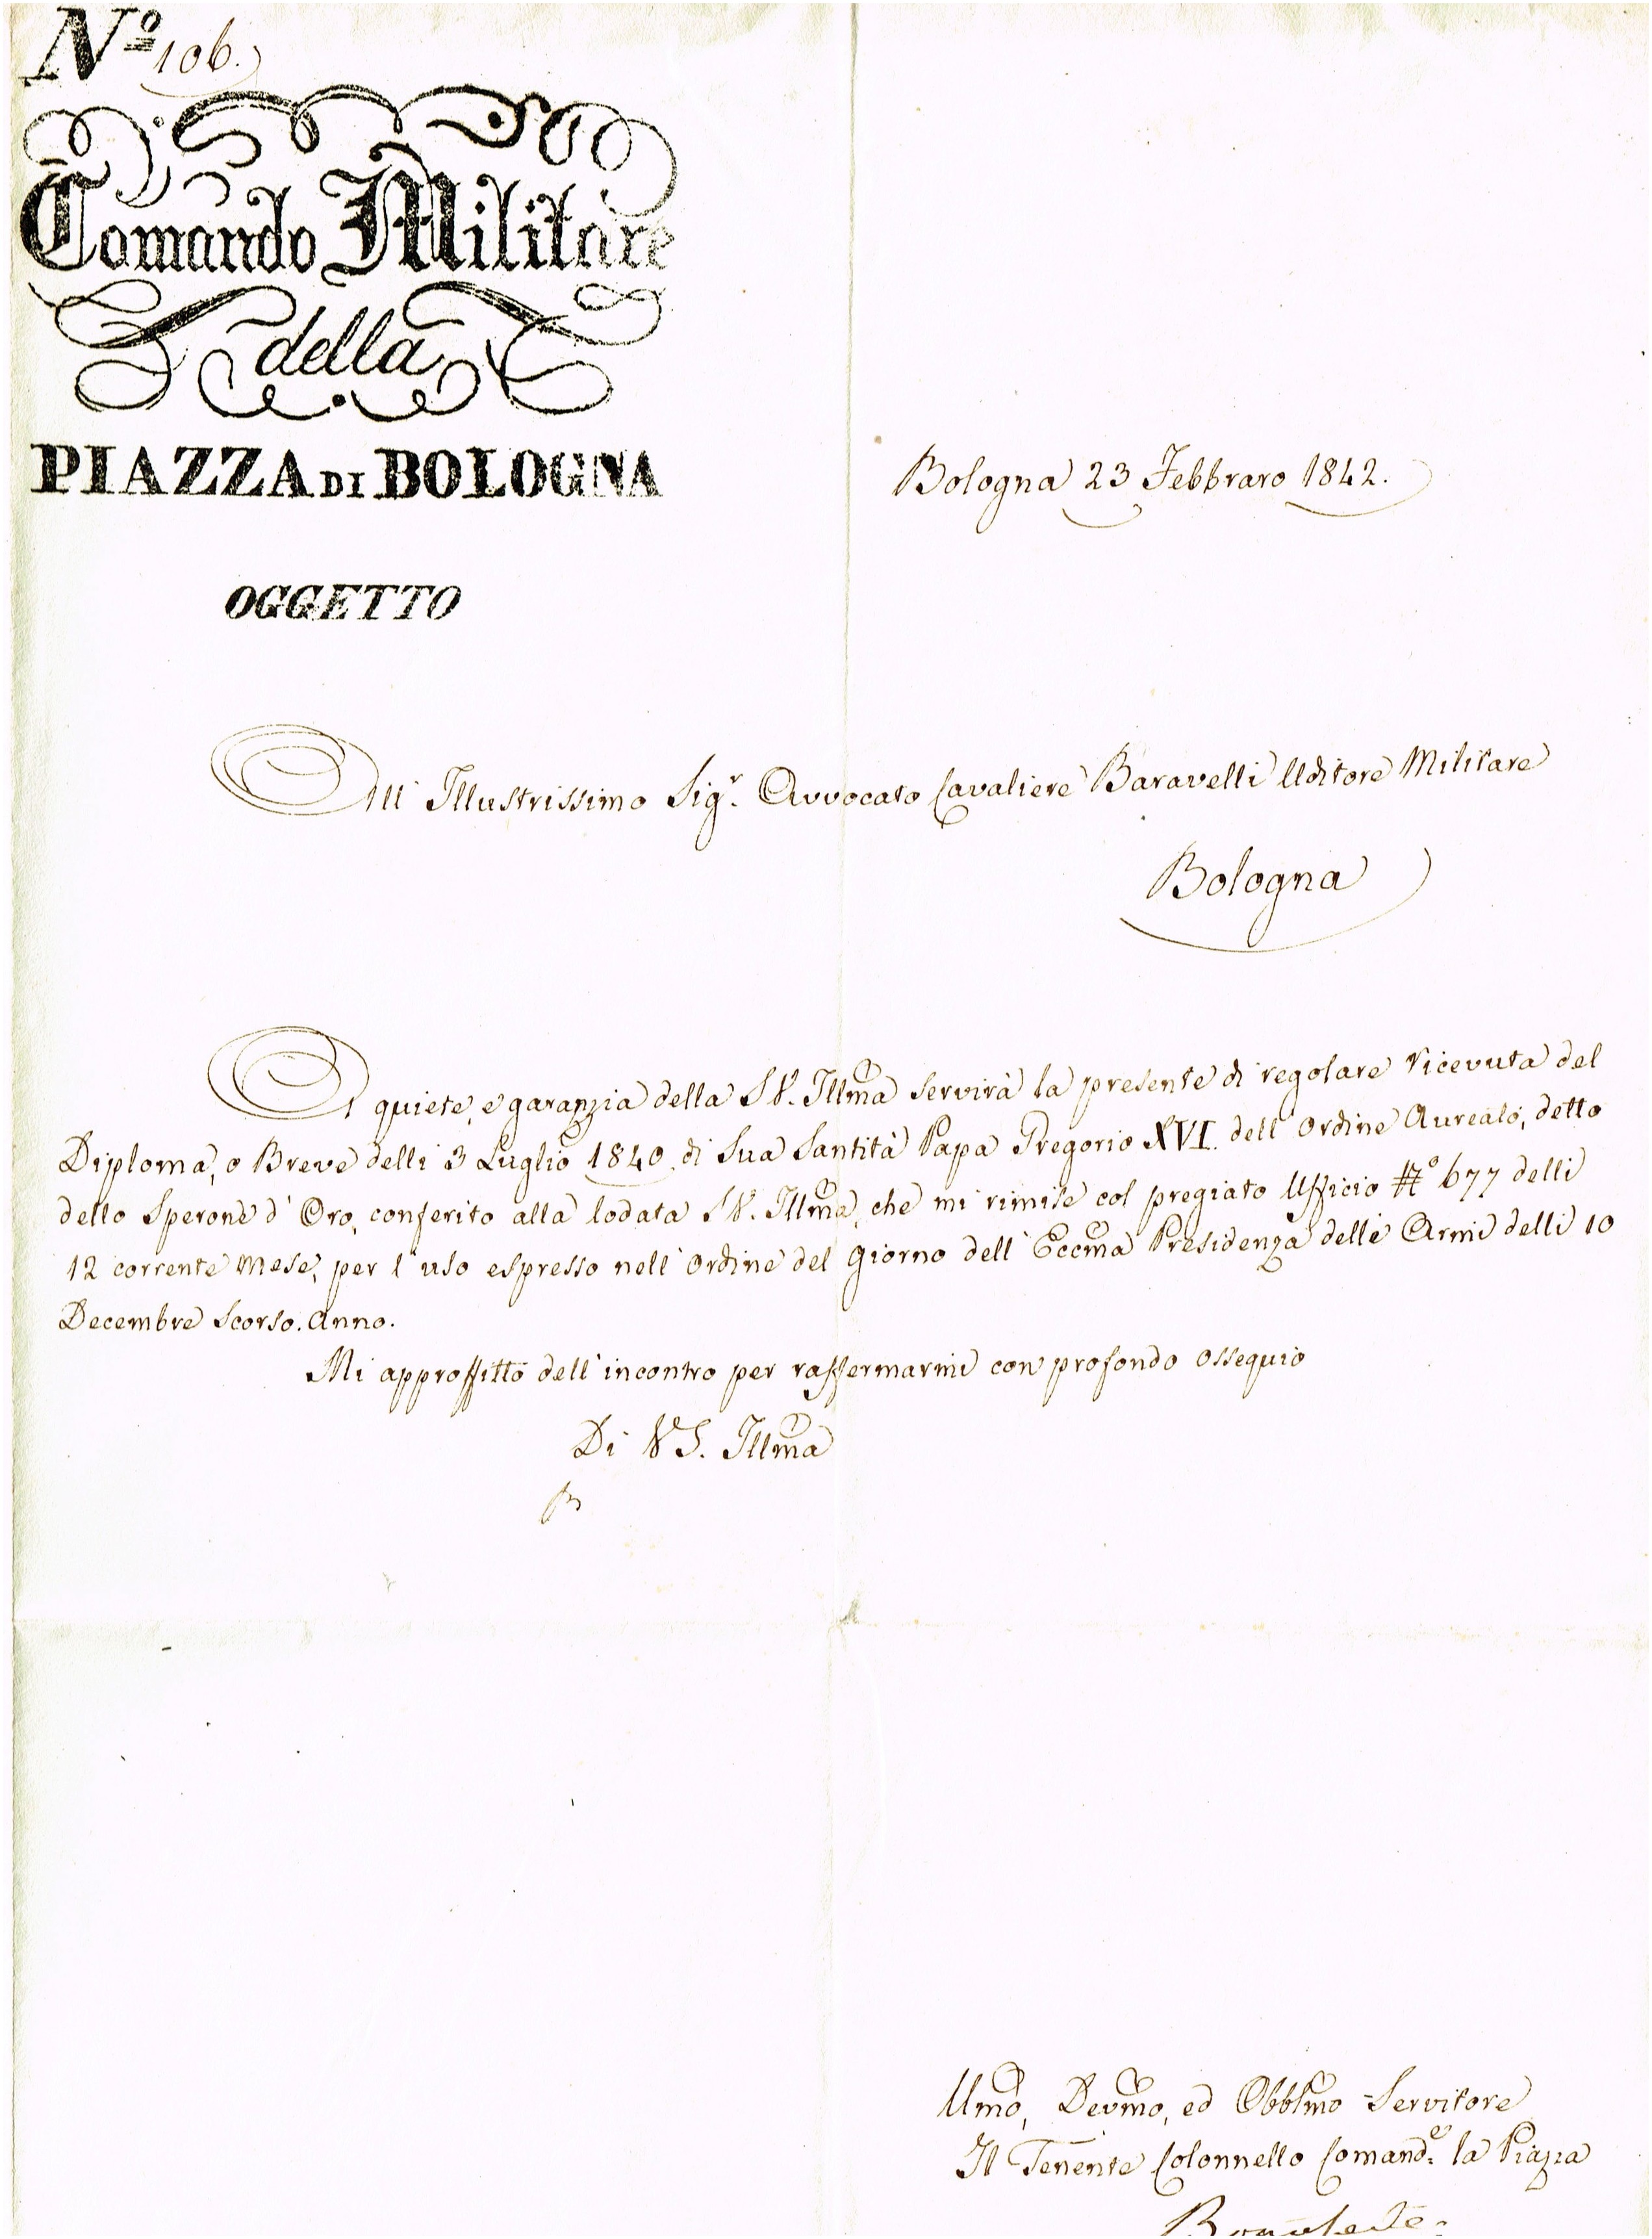 Nº 106.
Comando Militare
della
PIAZZA DI BOLOGNA
Bologna 23 Febbraro 1842.
OGGETTO
All' Illustrissimo Sigr. Avvocato Cavaliere Baravelli Uditore Militare
Bologna
A quiete, e garanzia della S V. Illma servirà la presente di regolare ricevuta del
Diploma, o Breve delli 3 Luglio 1840. di Sua Santità Papa Gregorio XVI. dell' Ordine Aureato, detto
dello Sperone d' Oro, conferito alla lodata S V. Illma, che mi rimise col pregiato Ufficio No 677 delli
12 corrente Mese, per l' uso espresso nell' Ordine del Giorno dell' Eccma Presidenza delle Armi delli 10
Decembre Scorso. Anno.
Mi approffitto dell' incontro per raffermarmi con profondo ossequio
Di V S. Illma
Umo, Devmo, ed Obblmo Servitore
Il Tenente Colonnello Comande. la Piazza